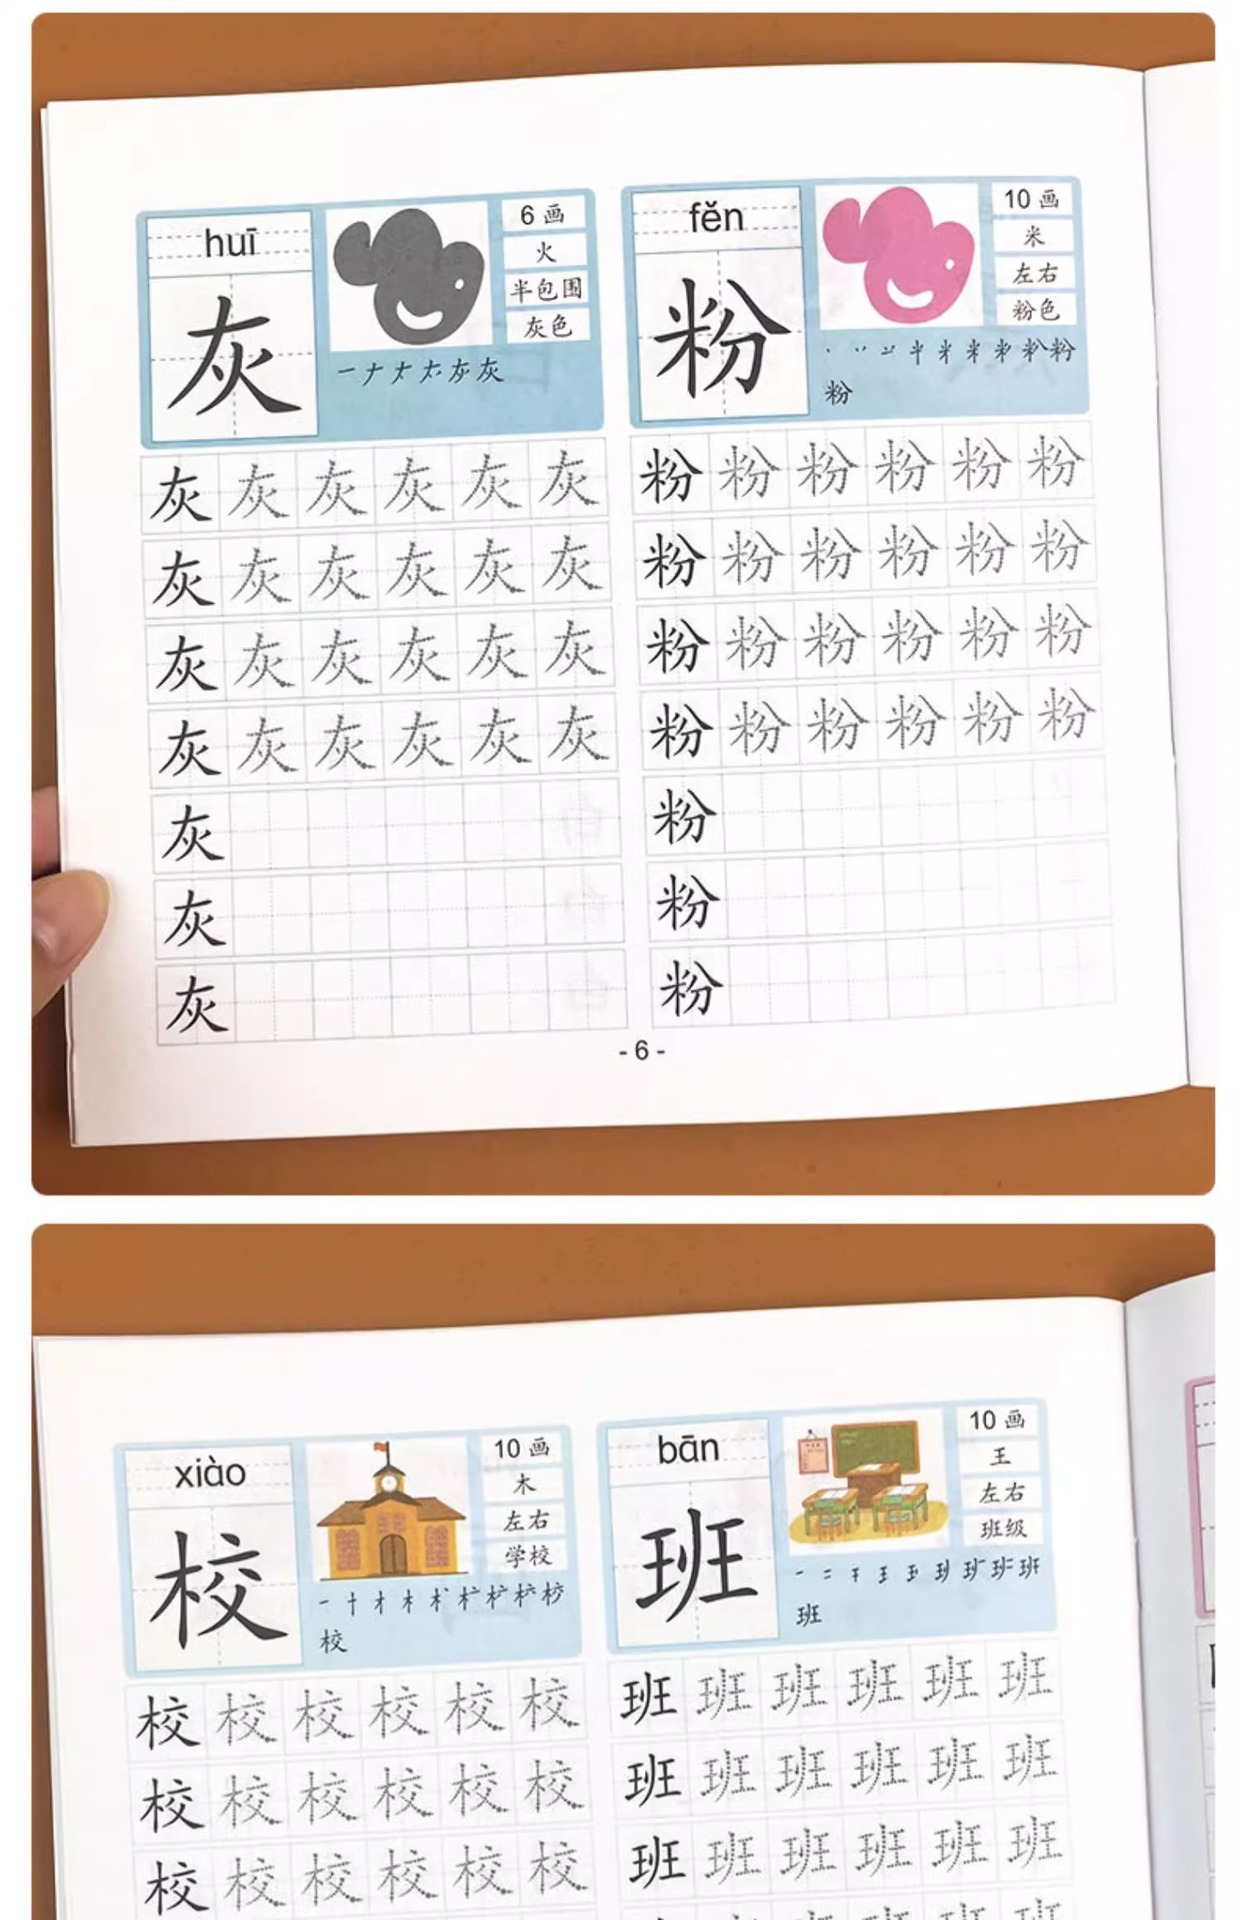 huī
灰
6 画
火
半包围
灰色
灰
灰 灰 灰 灰 灰 灰
灰 灰 灰 灰 灰 灰
灰 灰 灰 灰 灰 灰
灰 灰 灰 灰 灰 灰
灰
灰
灰
fěn
粉
10 画
米
左右
粉色
粉
粉
粉 粉 粉 粉 粉 粉
粉 粉 粉 粉 粉 粉
粉 粉 粉 粉 粉 粉
粉 粉 粉 粉 粉 粉
粉
粉
粉
- 6 -
xiào
校
10 画
木
左右
学校
校
校 校 校 校 校 校
校 校 校 校 校 校
校 校 校 校 校 校
bān
班
10 画
王
左右
班级
班
班 班 班 班 班 班
班 班 班 班 班 班
班 班 班 班 班 班